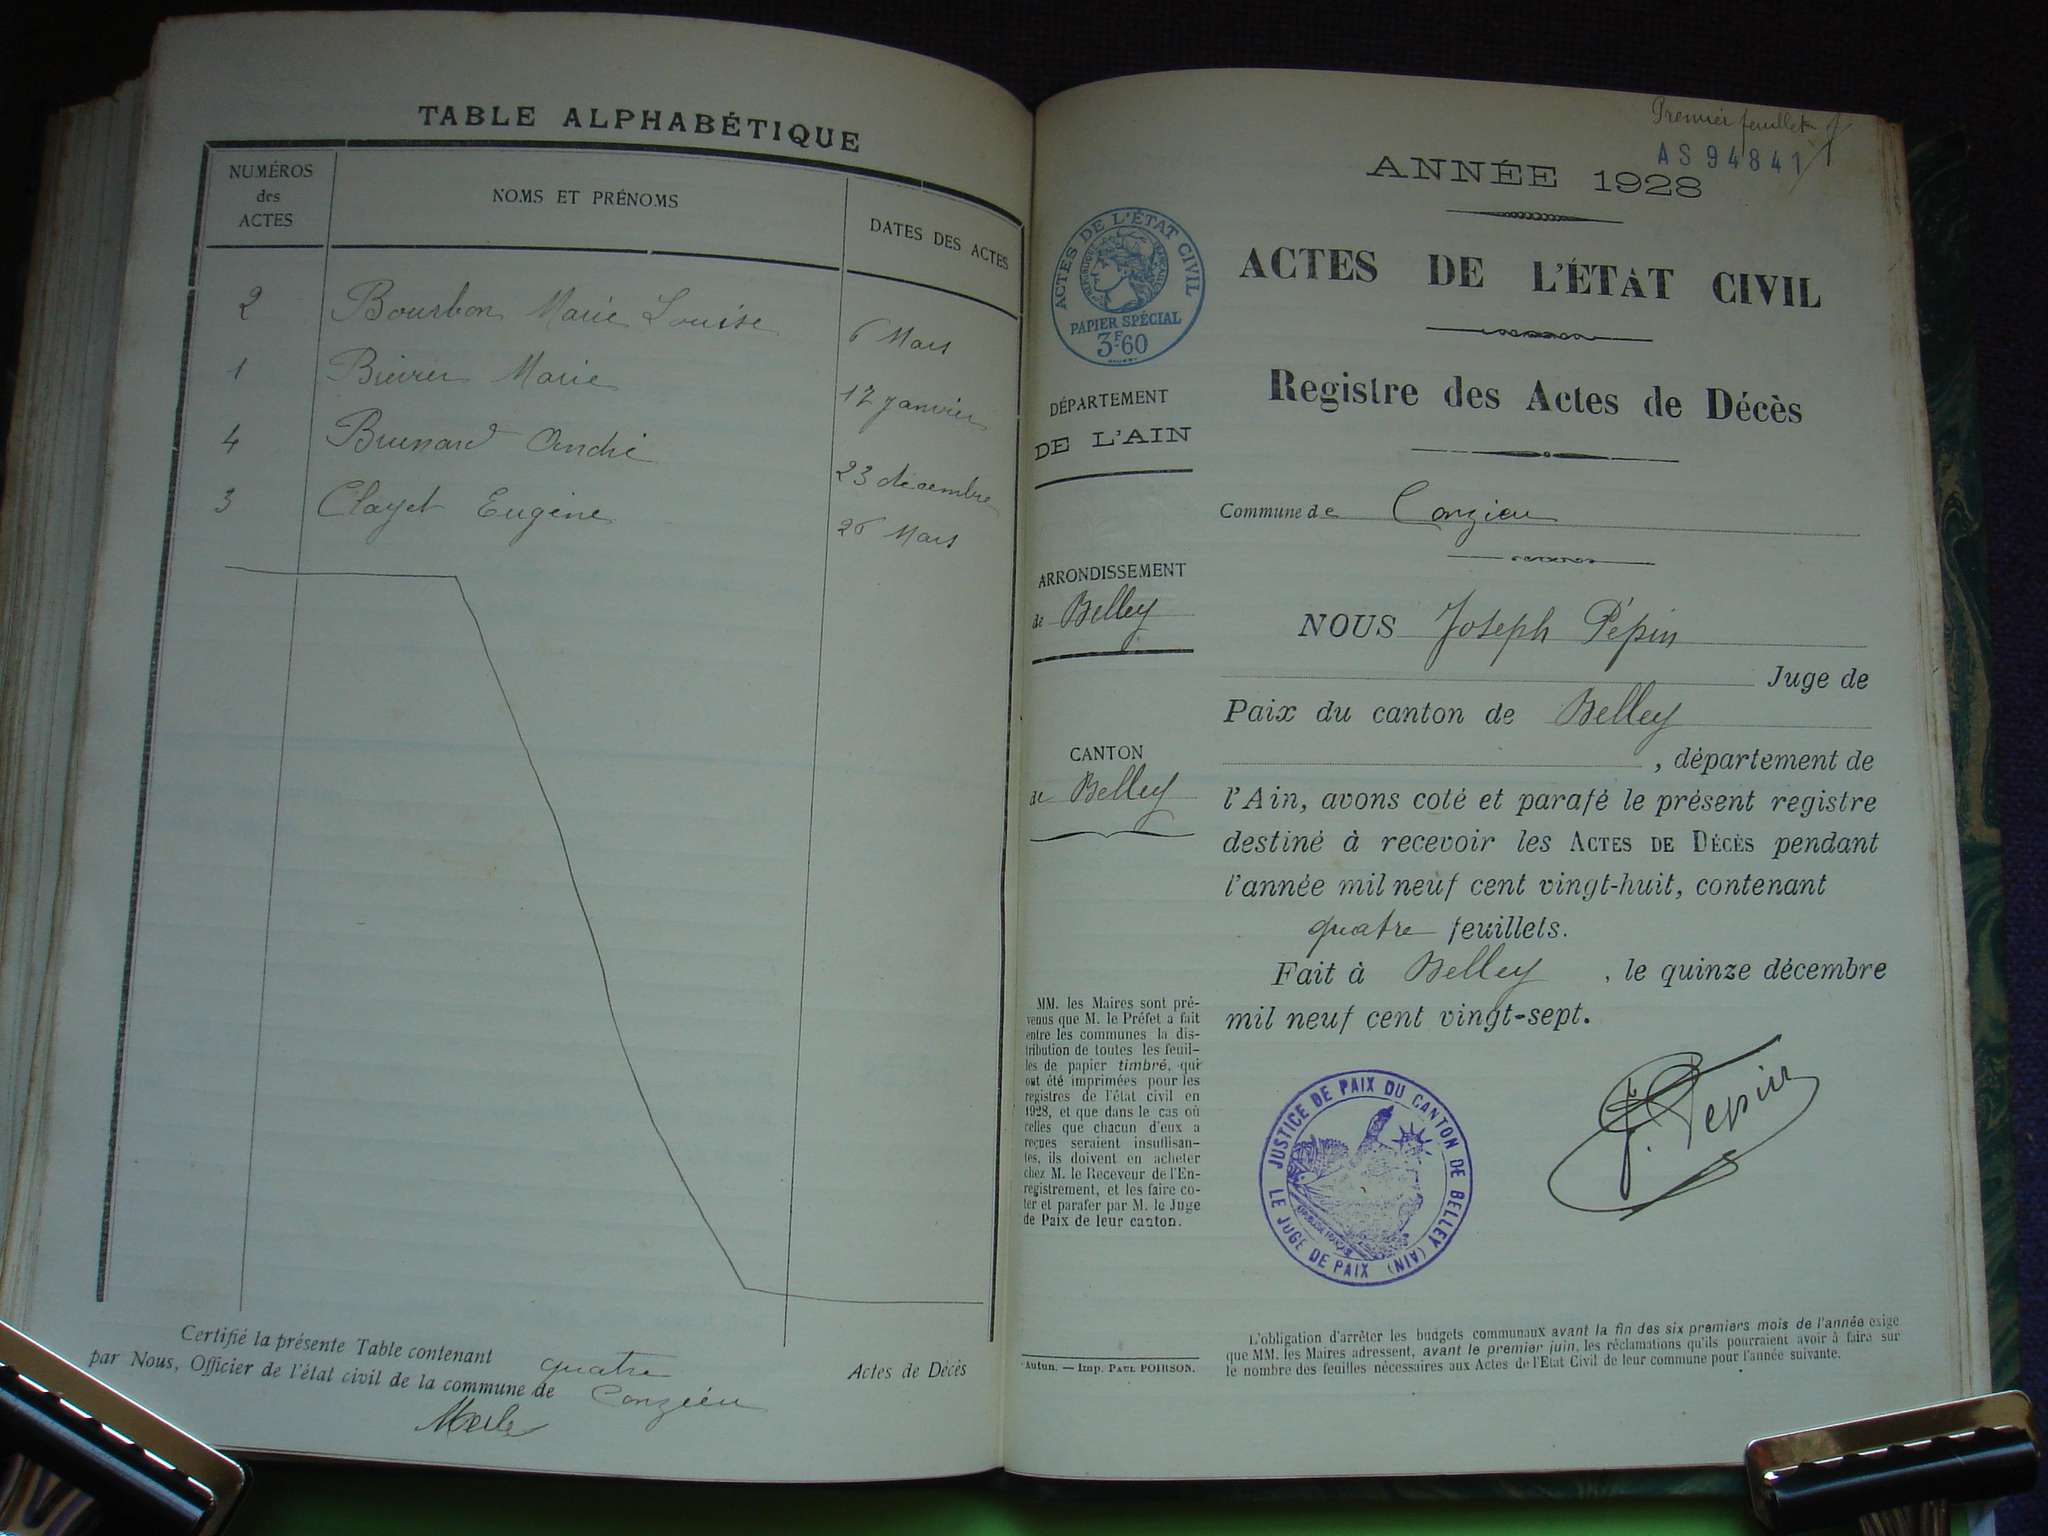 TABLE ALPHABÉTIQUE
NUMÉROS
des
ACTES
NOMS ET PRÉNOMS
DATES DES ACTES
2 Bourbon Marie Louise 6 Mars
1 Marie 17 janvier
4 André 23 décembre
3 Clayet Eugène 26 Mars
Certifié la présente Table contenant quatre Actes de Décès
par Nous, Officier de l'état civil de la commune de Conzieu
Premier feuillet
AS 94841
ANNÉE 1928
ACTES DE L'ÉTAT CIVIL
PAPIER SPÉCIAL
3F60
ACTES DE L'ÉTAT CIVIL
Registre des Actes de Décès
DÉPARTEMENT
DE L'AIN
Commune de Conzieu
ARRONDISSEMENT
de Belley
NOUS Joseph Pépin
Juge de
Paix du canton de Belley
, département de
CANTON
de Belley
l'Ain, avons coté et parafé le présent registre
destiné à recevoir les ACTES DE DÉCÈS pendant
l'année mil neuf cent vingt-huit, contenant
quatre feuillets.
Fait à Belley , le quinze décembre
mil neuf cent vingt-sept.
MM. les Maires sont pré-
venus que M. le Préfet a fait
entre les communes la dis-
tribution de toutes les feuil-
les de papier timbré, qui
ont été imprimées pour les
registres de l'état civil en
1928, et que dans le cas où
celles que chacun d'eux a
reçues seraient insuffisan-
tes, ils doivent en acheter
chez M. le Receveur de l'En-
registrement, et les faire co-
ter et parafer par M. le Juge
de Paix de leur canton.
JUSTICE DE PAIX DU CANTON DE BELLEY (AIN)
LE JUGE DE PAIX
J. Pépin
Autun. — Imp. PAUL POIRSON.
L'obligation d'arrêter les budgets communaux avant la fin des six premiers mois de l'année exige
que MM. les Maires adressent, avant le premier juin, les réclamations qu'ils pourraient avoir à faire sur
le nombre des feuilles nécessaires aux Actes de l'Etat Civil de leur commune pour l'année suivante.